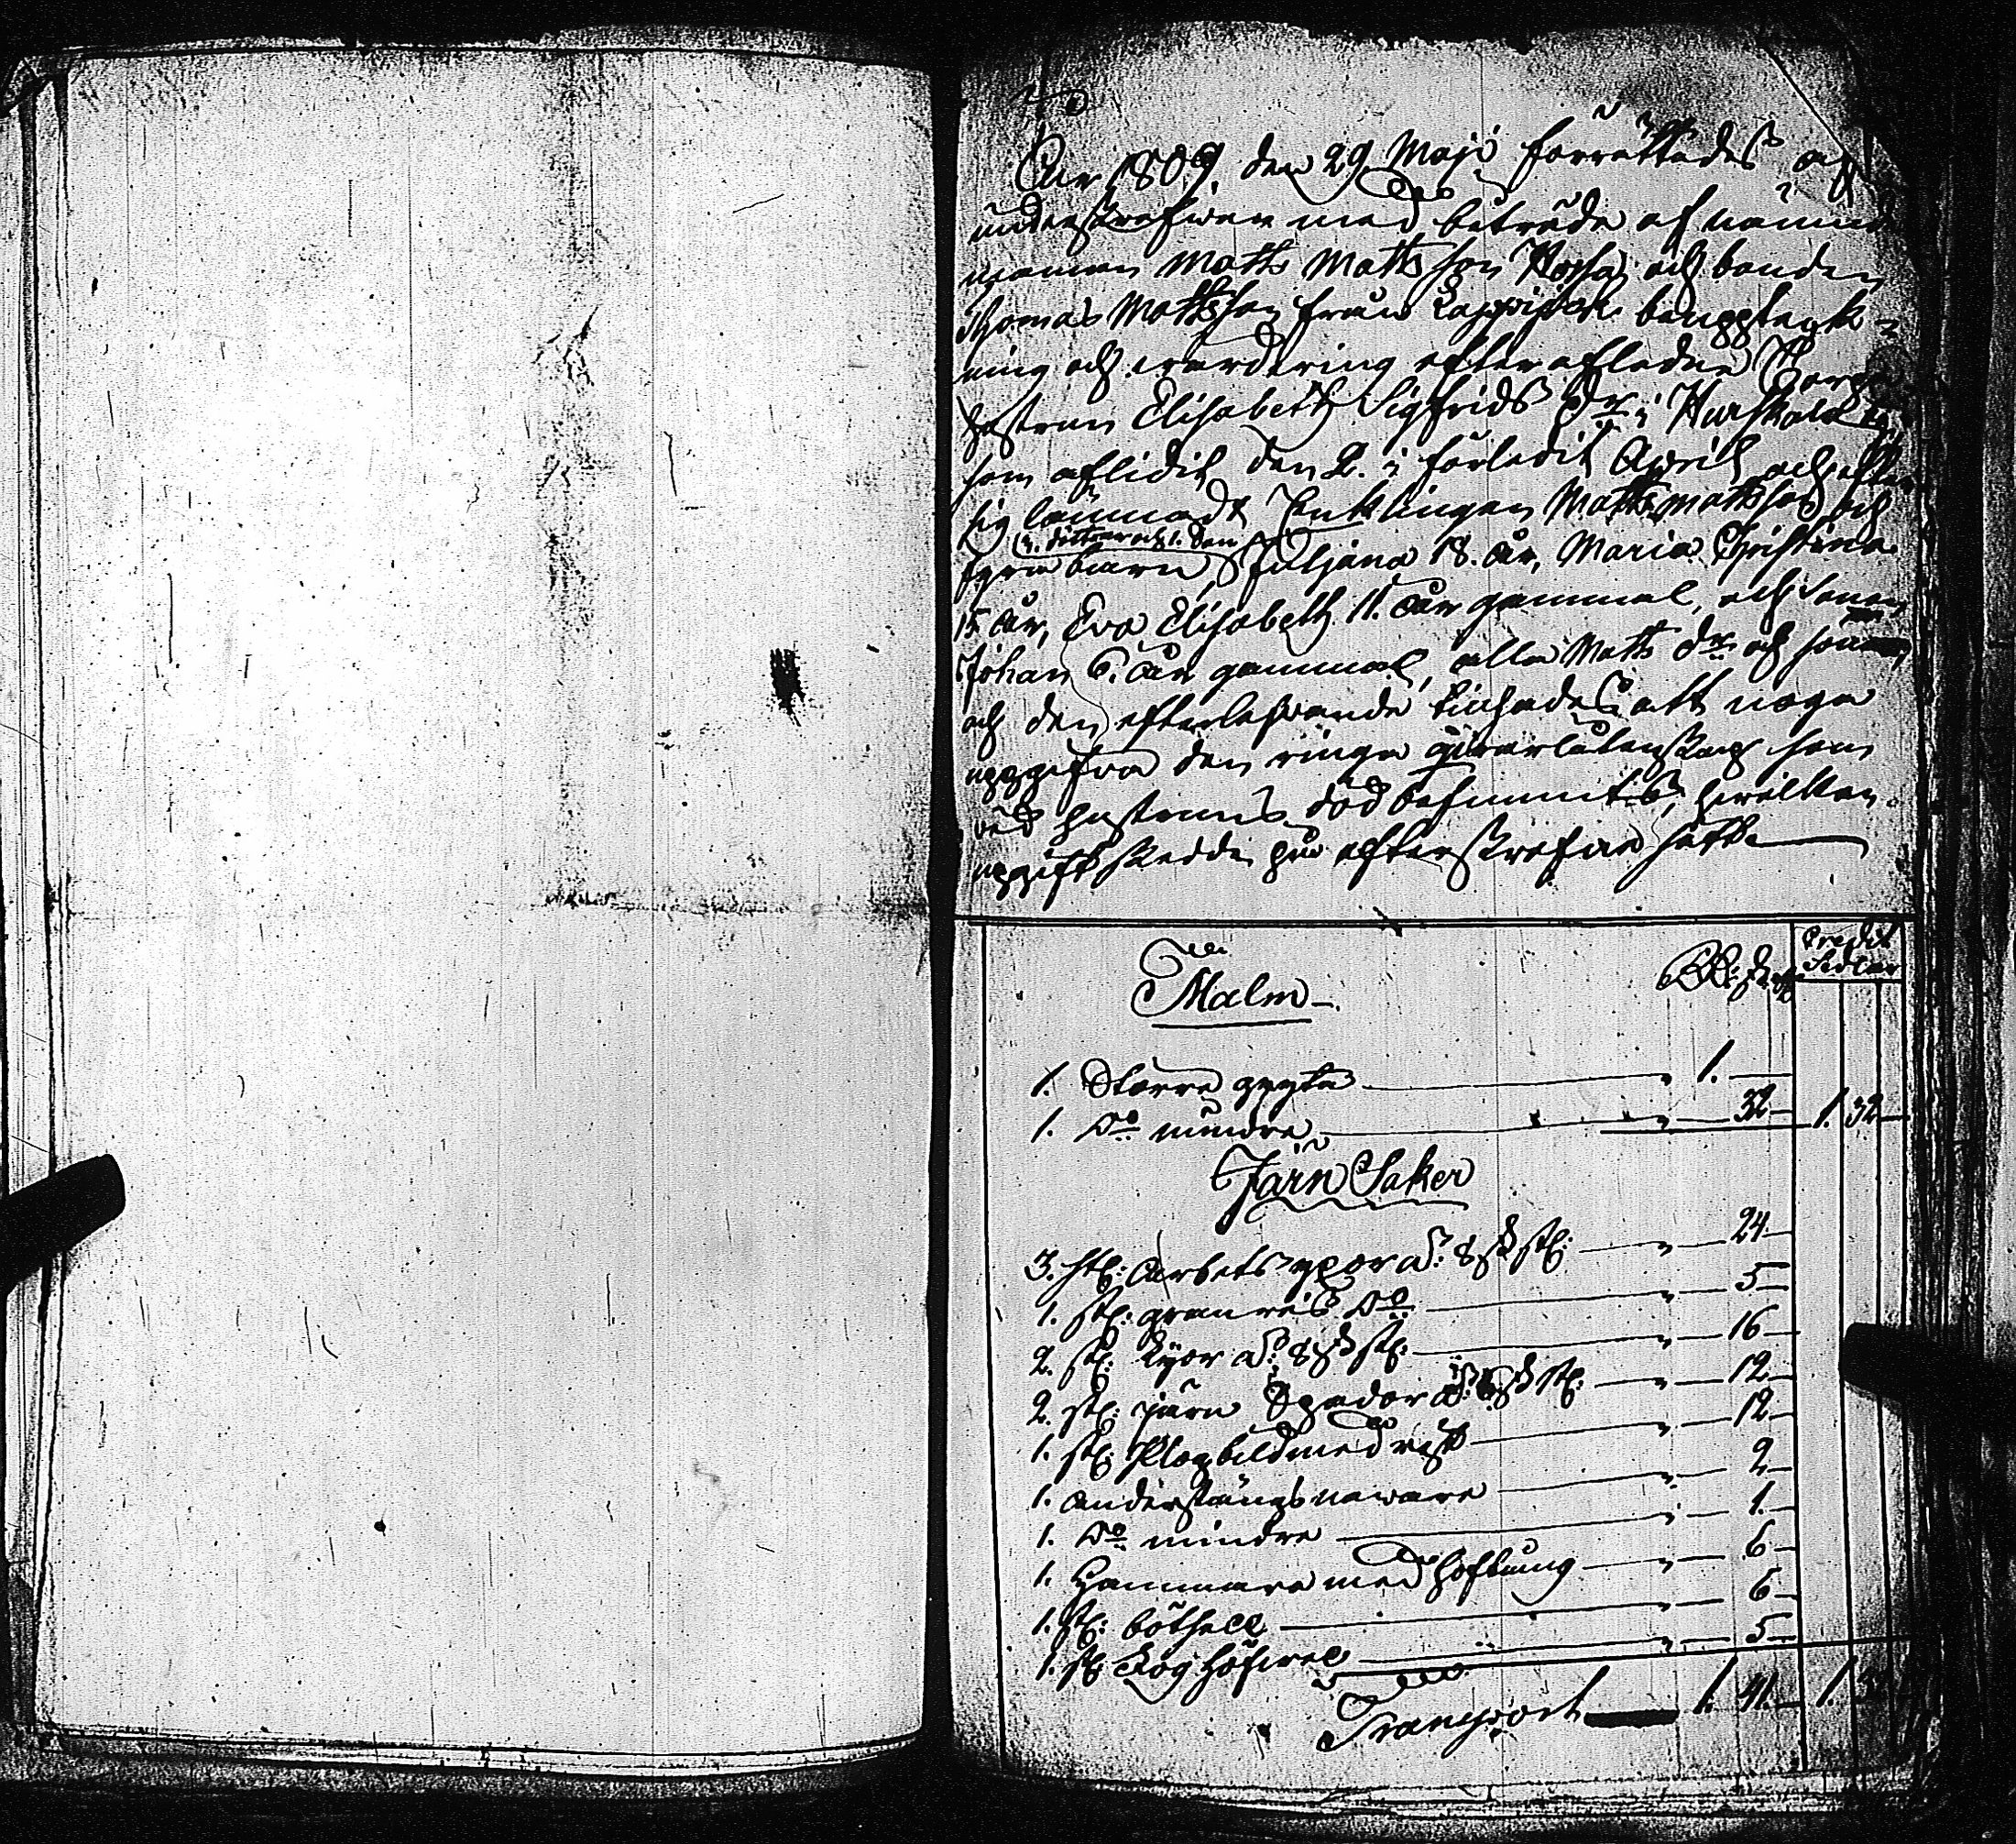 År 1809 den 29 Maji förrättades af
underskrefwen med biträde af nämnd
mannen Matts Mattsson och bonden
Thomas Mattsson från bouppteck-
ning och wärdering efter afledne
hustrun Elisabeth Sigfrids Dr i
som aflidit den 2. i förledit April och efter
sig lämnadt Enklingen Matts Mattsson och
3. döttrar och 1. Son
fyra barn, Juljana 18. år, Maria Christina
15 år, Eva Elisabeth 11. år gammal, och Sonen
Johan 6. år gammal, alla Matts Dr och son
och den efterlefwande tilsades att noga
uppgifva den ringa qvarlåtenskap som
wid hustruns död befunnits, hwilken
uppgift skedde på efterskrefne sätt
Credit
Sedlar
Malm
1. Större gryta 1.
1. Do mindre 32 1. 32
Järn Saker
3. st: arbets yxor a: 8 sk st: 24
1. st: granris Do 5
2. st: Lyor a: 8 sk st: 16
2. st: järn Spador a: 6 sk st: 12
1. st: Plogbild med rist 12
1. naware 2
1. Do mindre 1.
1. Hammare med hoftång 6
1. st: 6
1. st: 5
Transport 1. 41. 1.